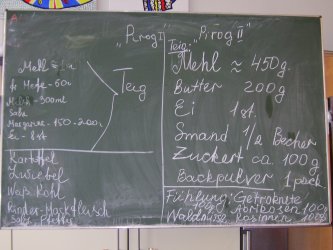 „Pirog I"
Mehl ≈ 1 kg
Hefe - 60г
Milch - 300ml
Salz
Margarine - 150-200г
Ei - 1 st
Teig
Kartoffel
Zwiebel
Weiß Kohl
Rinder-Hackfleisch
Salz, Pfeffer
„Pirog II"
Teig:
Mehl ≈ 450 g.
Butter 200 g
Ei 1 st.
Smand 1/2 Becher
Zuckert ca. 100 g
Backpulver 1 pack
Fühlung: Getroknete
Aprikosen 100g
Walnüsse, Rosinnen 100g